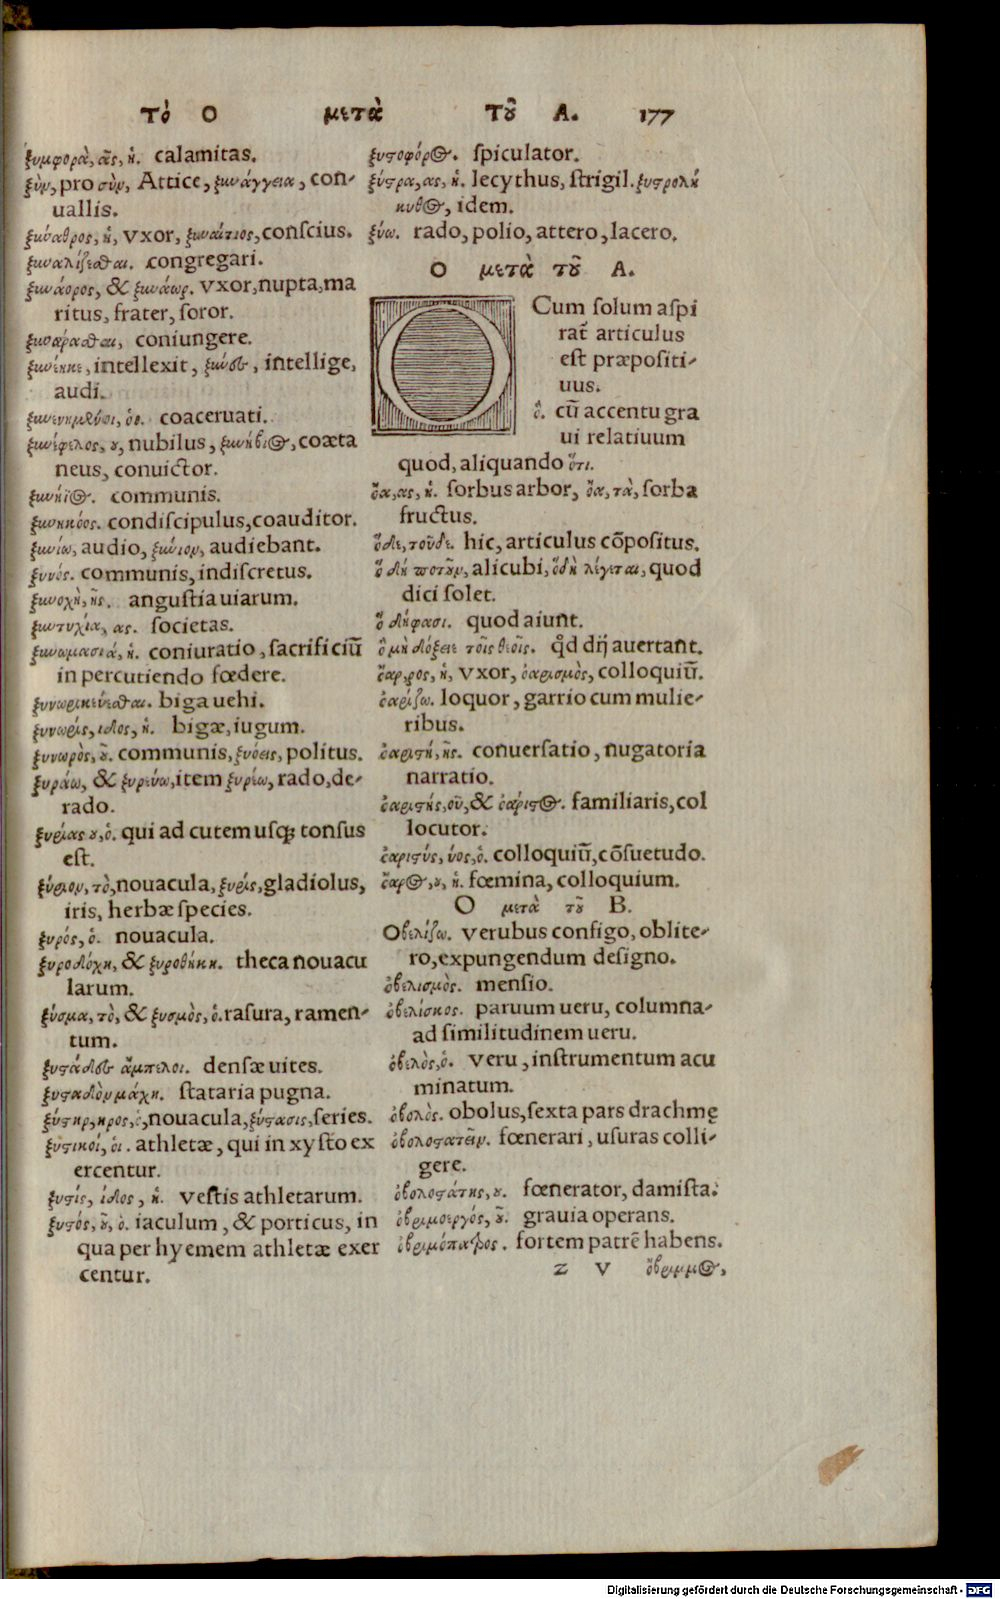 τὸ Ο μετὰ τοῦ Α. 177
ξυμφορὰ, ᾶς, ἡ. calamitas.
ξὺν, pro σὺν, Attice, ξυνάγγεια, con-
uallis.
ξυνάθρος, ἡ, vxor, ξυναίτιος, conſcius.
ξυναλίζεσθαι. congregari.
ξυνάορος, & ξυνάωρ. vxor, nupta, ma
ritus, frater, ſoror.
coniungere.
intellexit, intellige,
audi.
coaceruati.
ξυννέφελος, ου, nubilus, coæta
neus, conuictor.
communis.
condiſcipulus, coauditor.
ξυνίω, audio, ξύνιον, audiebant.
ξυνός. communis, indiſcretus.
ξυνοχὴ, ῆς. anguſtia uiarum.
ξυντυχία, ας. ſocietas.
ξυνωμοσιά, ἡ. coniuratio, ſacrificiū
in percutiendo fœdere.
ξυνωρικεύεσθαι. biga uehi.
ξυνωρὶς, ιδος, ἡ. bigæ, iugum.
ξυνωρὸς, οῦ. communis, ξυόεις, politus.
ξυράω, & ξυρεύω, item ξυρέω, rado, de-
rado.
ξυρίας ου, ὁ. qui ad cutem uſqꝫ tonſus
eſt.
ξύριον, τὸ, nouacula, ξυρίς, gladiolus,
iris, herbæ ſpecies.
ξυρός, ὁ. nouacula.
ξυροδόχη, & ξυροθήκη. theca nouacu
larum.
ξύσμα, τὸ, & ξυσμὸς, ὁ. raſura, ramen-
tum.
ξυστάδες ἄμπελοι. denſæ uites.
ξυσταδὸν μάχη. ſtataria pugna.
ξύστηρ, ηρος, ὁ, nouacula, ξύστασις, ſeries.
ξυστικοί, οἱ. athletæ, qui in xyſto ex
ercentur.
ξυστὶς, ίδος, ἡ. veſtis athletarum.
ξυστός, οῦ, ὁ. iaculum, & porticus, in
qua per hyemem athletæ exer
centur.
ξυστοφόρος. ſpiculator.
ξύστρα, ας, ἡ. lecythus, ſtrigil. ξυστρολή
κυθος, idem.
ξύω. rado, polio, attero, lacero.
Ο μετὰ τοῦ Α.
O Cum ſolum aſpi
rat articulus
eſt præpoſiti-
uus.
ὃ. cū accentu gra
ui relatiuum
quod, aliquando ὅτι.
ὄα, ας, ἡ. ſorbus arbor, ὄα, τὰ, ſorba
fructus.
ὅδε, τοῦδε. hic, articulus cōpoſitus.
ὅ δή ποτοῦν, alicubi, ὅδη λέγεται, quod
dici ſolet.
ὅ δήφασι. quod aiunt.
ὃ μὴ δόξειε τοῖς θεοῖς. qđ dij auertant.
ὄαρρος, ἡ, vxor, ὀαρισμὸς, colloquiū.
ὀαρίζω. loquor, garrio cum mulie-
ribus.
ὀαριστή, ῆς. conuerſatio, nugatoria
narratio.
ὀαριστής, οῦ, & ὀάριστος. familiaris, col
locutor.
ὀαριστύς, ύος, ὁ. colloquiū, cōſuetudo.
ὄαρος, ου, ἡ. fœmina, colloquium.
Ο μετὰ τοῦ Β.
Οβελίζω. verubus configo, oblite-
ro, expungendum deſigno.
ὀβελισμὸς. menſio.
ὀβελίσκος. paruum ueru, columna-
ad ſimilitudinem ueru.
ὀβελὸς, ὁ. veru, inſtrumentum acu
minatum.
ὀβολὸς. obolus, ſexta pars drachmę
ὀβολοστατεῖν. fœnerari, uſuras colli-
gere.
ὀβολοστάτης, ου. fœnerator, damiſta.
ὀβριμοεργός, οῦ. grauia operans.
ὀβριμόπατρος. fortem patrē habens.
z V ὄβριμμος,
Digitalisierung gefördert durch die Deutsche Forschungsgemeinschaft - DFG